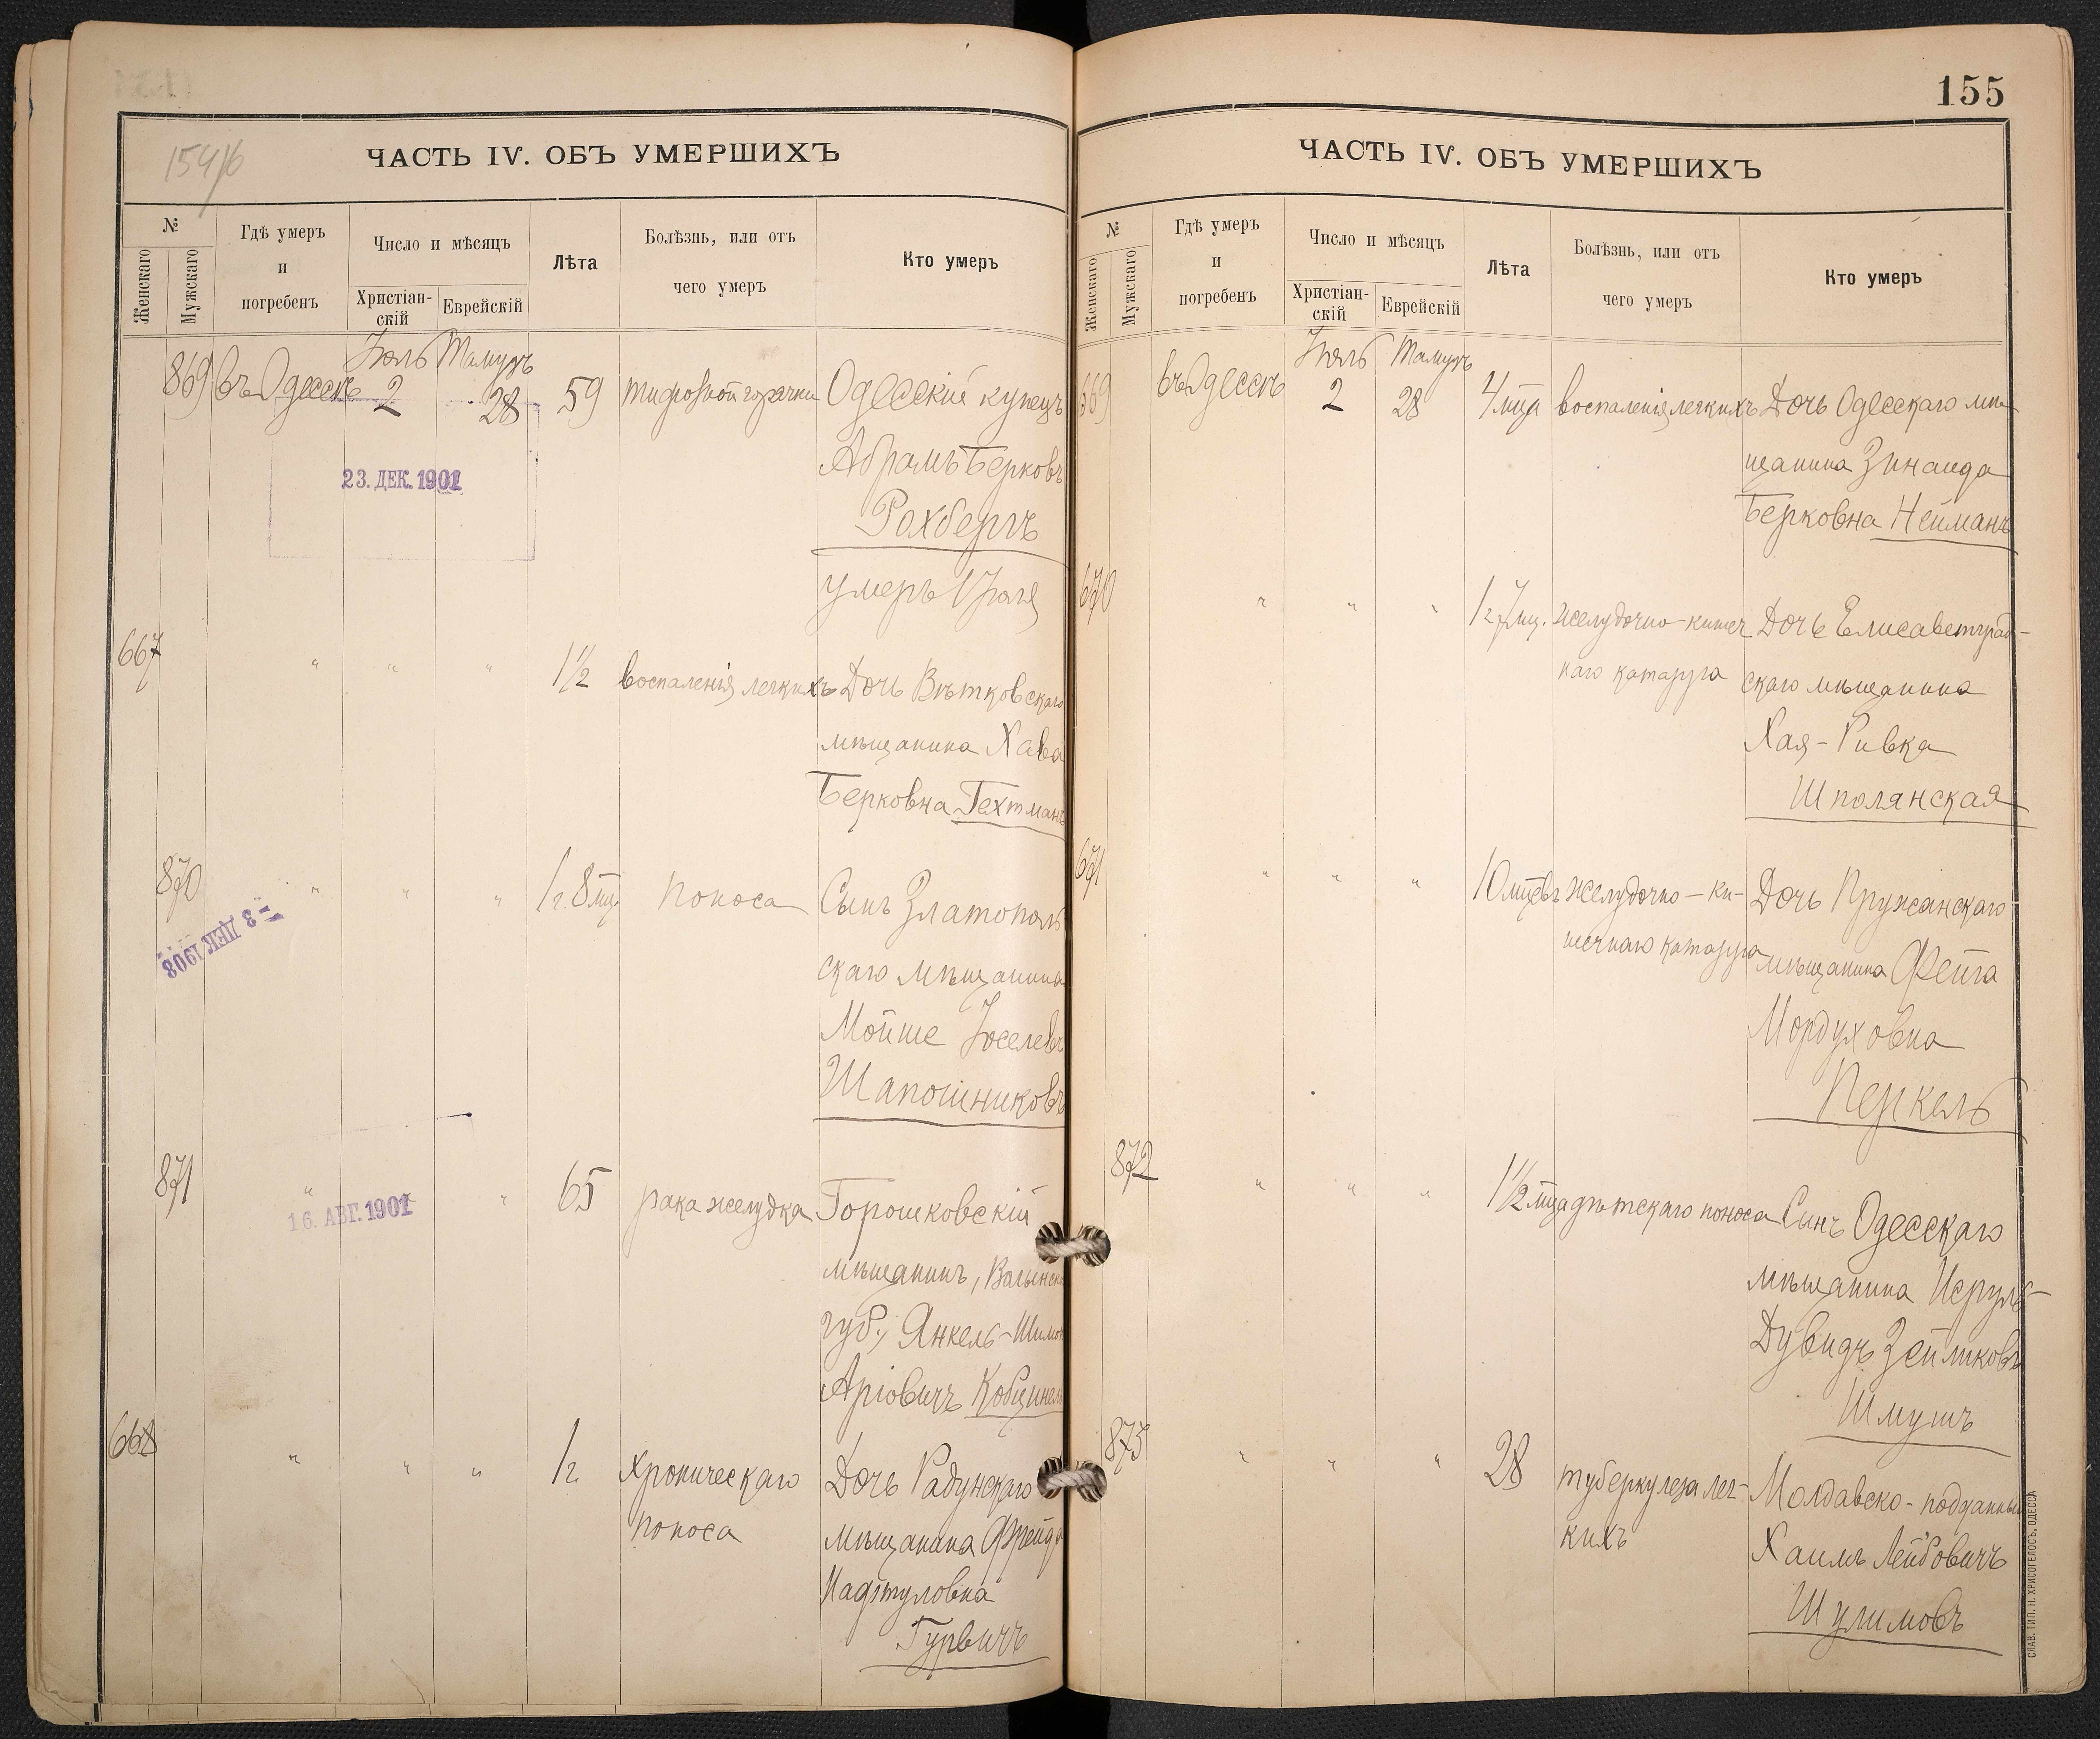 155
154/16
ЧАСТЬ IV. ОБЪ УМЕРШИХЪ
№
Женскаго
Мужскаго
Гдѣ умеръ
и
погребенъ
Число и мѣсяцъ
Христіан-
скій
Еврейскій
Лѣта
Болѣзнь, или отъ
чего умеръ
Кто умеръ
Іюль Тамузъ
869 въ Одессѣ 2 28 59 тифозной горячки Одесскій купецъ
Абрамъ Берковъ
23. ДЕК. 1901
Рохбергъ
умеръ 1 Іюля
667 " " " 1½ воспаленія легкихъ Дочь Вѣтковскаго
мѣщанина Хава
Берковна Гехтманъ
870 " " " 1 г. 8 мц. поноса Сынъ Златополь
=3 ДЕК 1908
скаго мѣщанина
Мойше Іоселевъ
Шапошниковъ
871 " " " 65 рака желудка Горошковскій
16. АВГ. 1901
мѣщанинъ, Волынск
губ., Янкель-Шимон
Аріовичъ
668 " " " 1 г. хроническаго Дочь Радунскаго
поноса мѣщанина Фрейда
Нафтуловна
Гурвичъ
ЧАСТЬ IV. ОБЪ УМЕРШИХЪ
№
Женскаго
Мужскаго
Гдѣ умеръ
и
погребенъ
Число и мѣсяцъ
Христіан-
скій
Еврейскій
Лѣта
Болѣзнь, или отъ
чего умеръ
Кто умеръ
Іюль Тамузъ
669 въ Одессѣ 2 28 4 мца воспаленія легкихъ Дочь Одесскаго мѣ-
щанина Зинаида
Берковна Нейманъ
670 " " " 1 г. 7 мц. желудочно-кишеч Дочь Елисаветград-
наго катарра скаго мѣщанина
Хая-Ривка
Шполянская
671 " " " 10 мцевъ желудочно-ки- Дочь Пружанскаго
шечнаго катарра мѣщанина Фейга
Мордуховна
Перкель
872 " " " 1½ мца дѣтскаго поноса Сынъ Одесскаго
мѣщанина Исруль-
Дувидъ Зейликовъ
Шмушъ
873 " " " 28 туберкулеза лег- Молдавско-подданный
кихъ Хаимъ Лейбовичъ
Шулимовъ
СЛАВ. ТИП. Н. ХРИСОГЕЛОСЪ, ОДЕССА